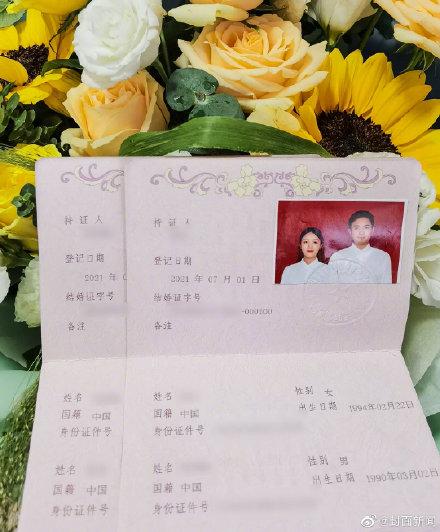 持证人
持证人
登记日期
登记日期
2021 年 0
2021 年 07月 01 日
结婚证字号
结婚证字号
-000100
备注
备注
姓名
姓名
性别 女
国籍 中国
国籍 中国
出生日期 1994年02月22日
身份证件号
身份证件号
姓名
姓名
性别 男
国籍 中国
国籍 中国
出生日期 1990年03月02日
身份证件号
身份证件号
@封面新闻